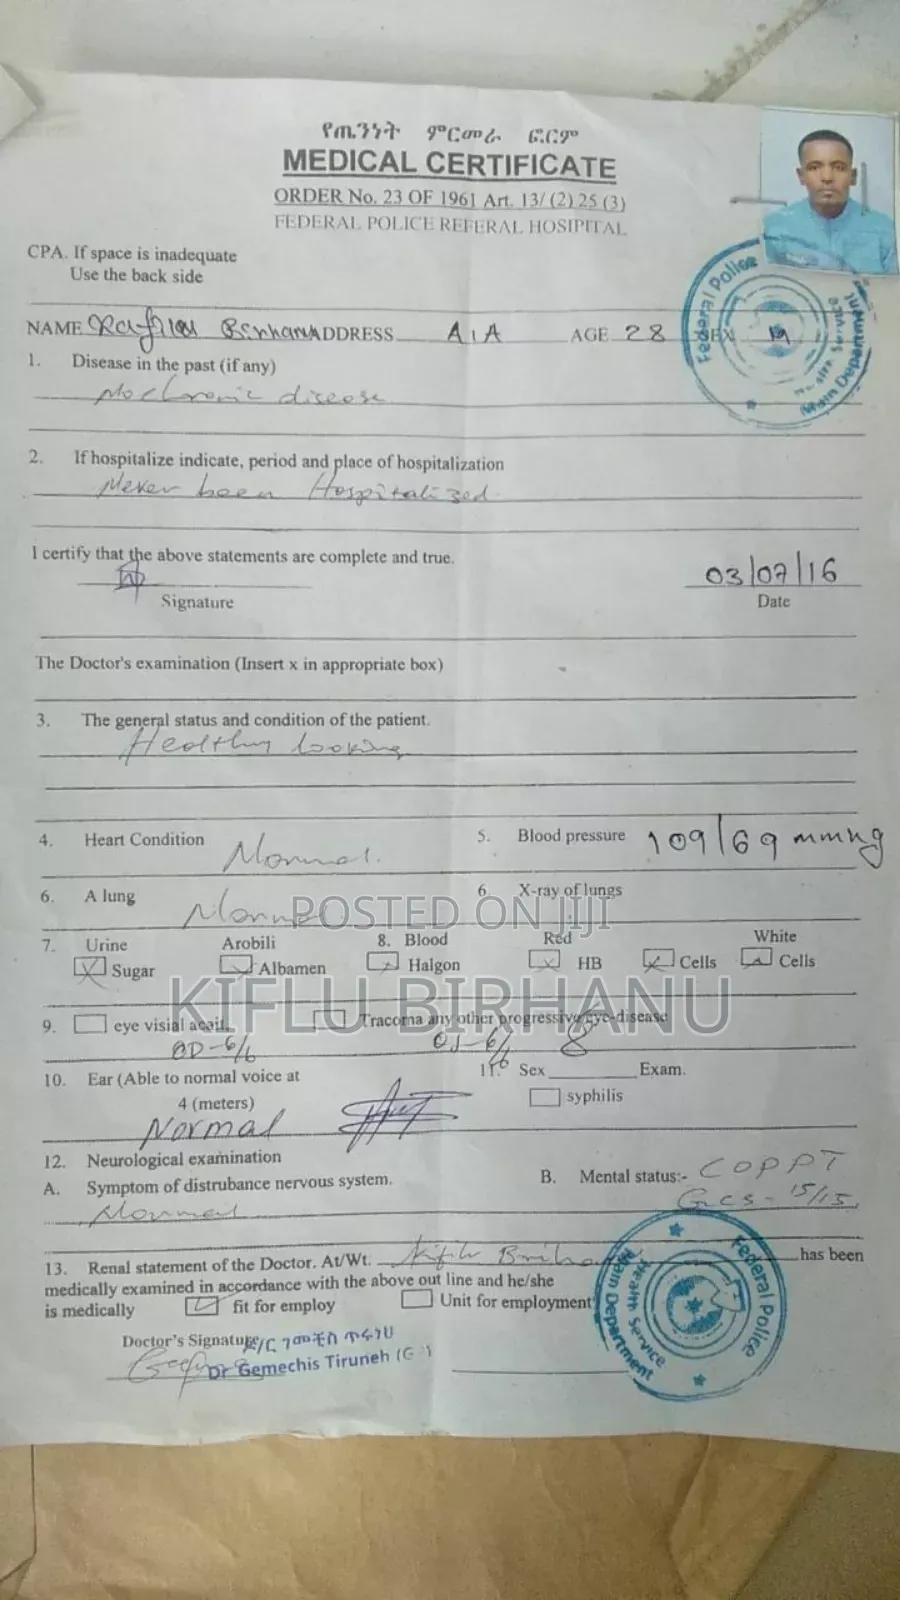 የጤንነት ምርመራ ፎርም
MEDICAL CERTIFICATE
ORDER No. 23 OF 1961 Art. 13/ (2) 25 (3)
FEDERAL POLICE REFERAL HOSIPITAL
CPA. If space is inadequate
Use the back side
NAME ADDRESS A.A AGE 28 SEX M
Federal Police
Health Service
Main Department
1. Disease in the past (if any)
No chronic disease
2. If hospitalize indicate, period and place of hospitalization
Never been Hospitalized
I certify that the above statements are complete and true.
03/07/16
Signature Date
The Doctor's examination (Insert x in appropriate box)
3. The general status and condition of the patient.
Healthy looking
4. Heart Condition Normal. 5. Blood pressure 109/69 mmHg
6. A lung Normal 6. X-ray of lungs
POSTED ON JIJI
7. Urine Arobili 8. Blood Red White
Sugar Albamen Halgon HB Cells Cells
KIFLU BIRHANU
9. eye visial acait. Tracoma any other progressive eye-disease
OD-6/6 OS-6/6
10. Ear (Able to normal voice at 11. Sex Exam.
4 (meters) syphilis
Normal
12. Neurological examination
A. Symptom of distrubance nervous system. B. Mental status:- COPPT
Normal GCS-15/15
13. Renal statement of the Doctor. At/Wt. Kiflu has been
medically examined in accordance with the above out line and he/she
is medically fit for employ Unit for employment
Federal Police
Health Service
Main Department
Doctor's Signature
Dr Gemechis Tiruneh